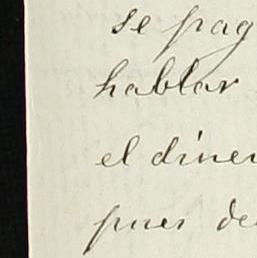 se pag
hablar
el diner
pues de